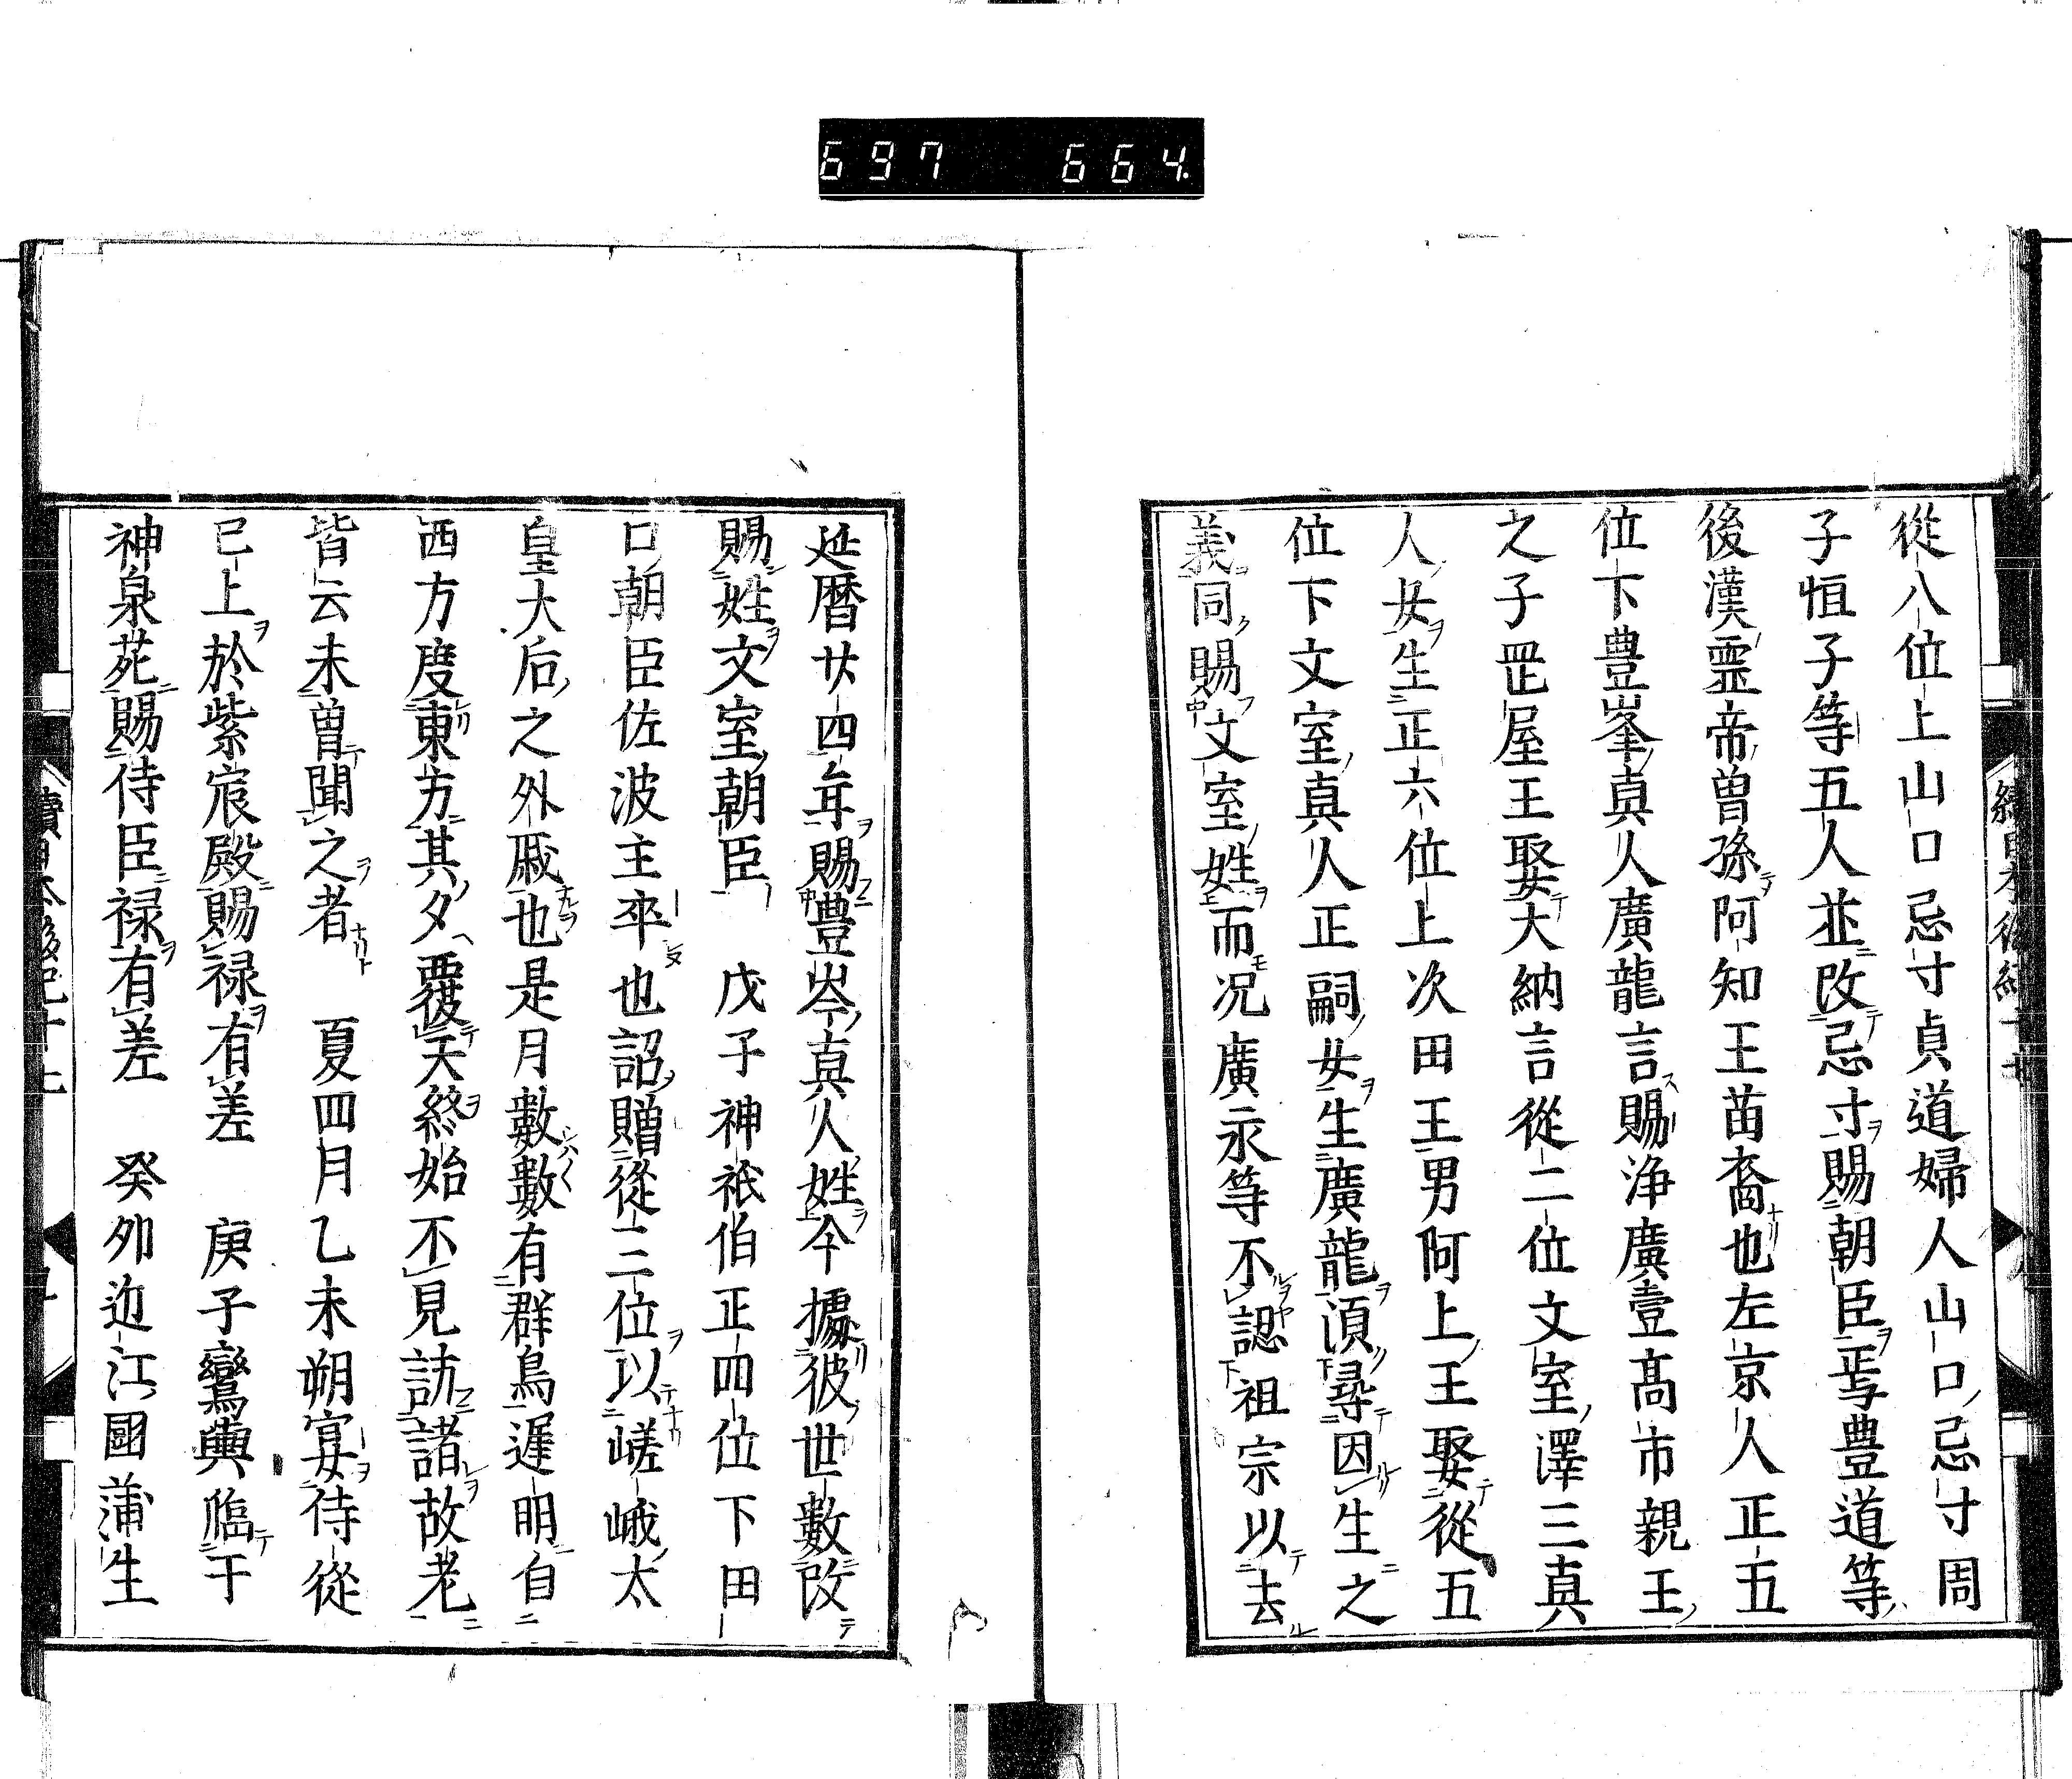 697 664.
從八位上山口忌寸貞道婦人山口忌寸周
子恒子等五人並改忌寸賜朝臣焉豊道等
後漢靈帝曾孫阿知王苗裔也左京人正五
位下豊峯真人廣龍言賜浄廣壹髙市親王
之子罡屋王娶大納言從二位文室澤三真
人女生正六位上次田王男阿上王娶從五
位下文室真人正嗣女生廣龍湏尋因生之
義同賜文室姓而况廣永等不認祖宗以去
延暦廿四年賜豊岑真人姓今據彼世數改
賜姓文室朝臣　戊子神祇伯正四位下田
口朝臣佐波主卒也詔贈從三位以嵯峨太
皇大后之外戚也是月數數有群鳥遅明自
西方度東方其夕覆天終始不見訪諸故老
皆云未曽聞之者　夏四月乙未朔宴侍從
已上於紫宸殿賜禄有差　庚子鸞輿臨于
神泉苑賜侍臣禄有差　癸卯近江國蒲生